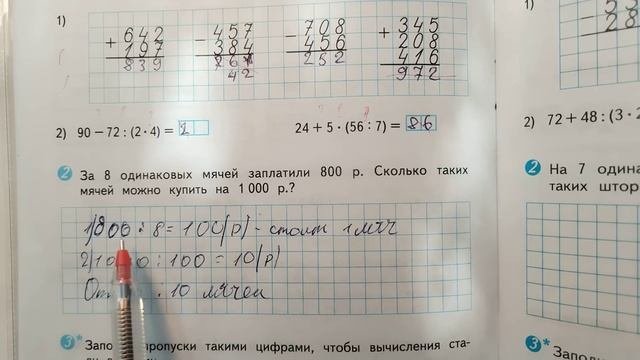 1)
+ 642 − 457 − 708 + 345
197 384 456 208
839 252 416
42 972
2) 90 − 72 : (2 · 4) = 24 + 5 · (56 : 7) = 86
2 За 8 одинаковых мячей заплатили 800 р. Сколько таких
мячей можно купить на 1 000 р.?
1) 800 : 8 = 100 (р) - стоит 1 мяч
2) : 100 = 10 (р)
10 мячей
3* пропуски такими цифрами, чтобы вычисления ста-
1)
28
2) 72 + 48 : (3 ·
2 На 7 одина
таких штор
3*